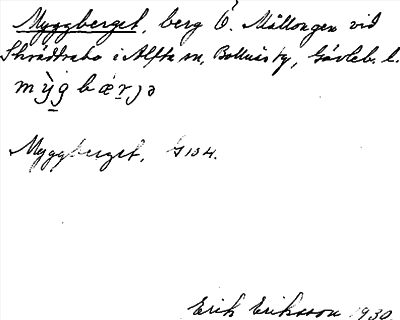 Myggberget, berg Ö. Mållongen vid
i Alfta sn, Bollnäs ty, Gävleb. l.
Myggberget, G 134.
Erik Eriksson 1930.